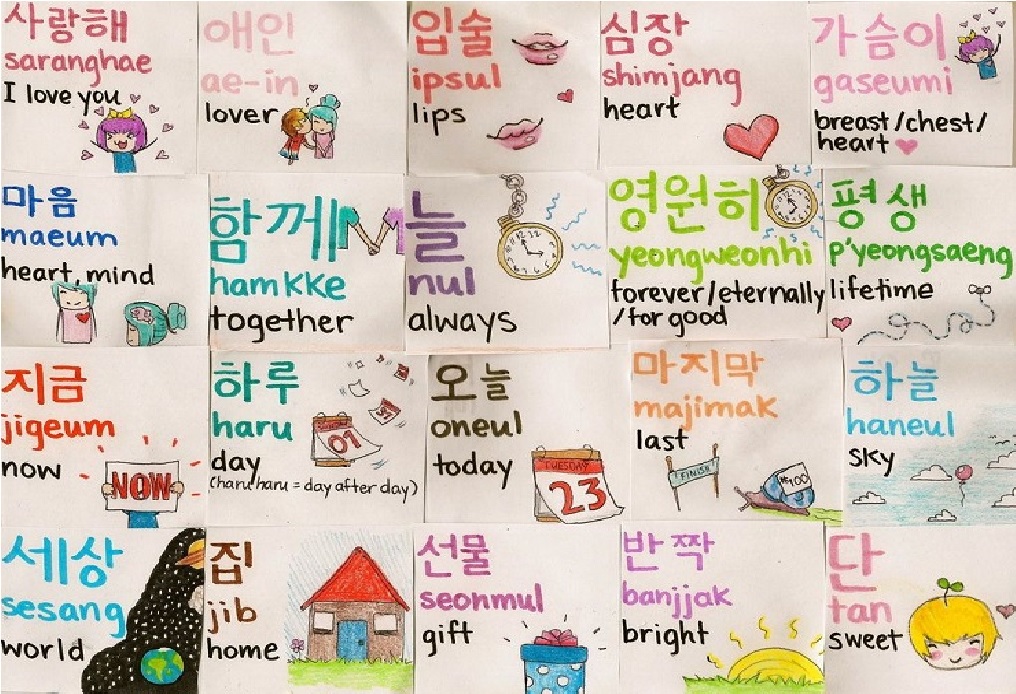 사랑해
saranghae
I love you
애인
ae-in
lover
입술
ipsul
lips
심장
shimjang
heart
가슴이
gaseumi
breast/chest/
heart
마음
maeum
heart, mind
함께
hamkke
together
늘
nul
always
영원히
yeongweonhi
forever/eternally
/for good
평생
p'yeongsaeng
lifetime
지금
jigeum
now
NOW
하루
haru
day
(haru haru = day after day)
01
31
오늘
oneul
today
TUESDAY
23
마지막
majimak
last
FINISH
하늘
haneul
sky
세상
sesang
world
집
jib
home
선물
seonmul
gift
반짝
banjjak
bright
단
tan
sweet